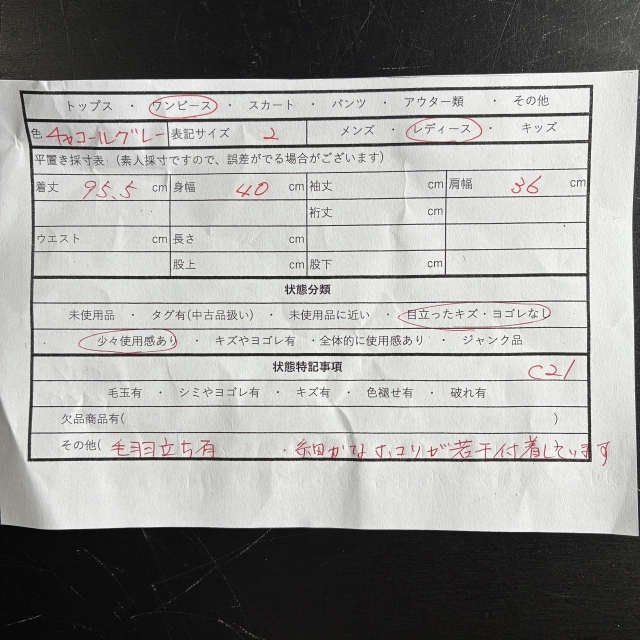 トップス ・ ワンピース ・ スカート ・ パンツ ・ アウター類 ・ その他
色 チャコールグレー 表記サイズ 2 メンズ ・ レディース ・ キッズ
平置き採寸表 (素人採寸ですので、誤差がでる場合がございます)
着丈 95.5 cm 身幅 40 cm 袖丈 cm 肩幅 36 cm
裄丈 cm
ウエスト cm 長さ cm
股上 cm 股下 cm
状態分類
未使用品 ・ タグ有(中古品扱い) ・ 未使用品に近い ・ 目立ったキズ・ヨゴレなし
・ 少々使用感あり ・ キズやヨゴレ有 ・ 全体的に使用感あり ・ ジャンク品
状態特記事項 C21
毛玉有 ・ シミやヨゴレ有 ・ キズ有 ・ 色褪せ有 ・ 破れ有
欠品商品有( )
その他( 毛羽立ち有 ・細かなホコリが若干付着しています